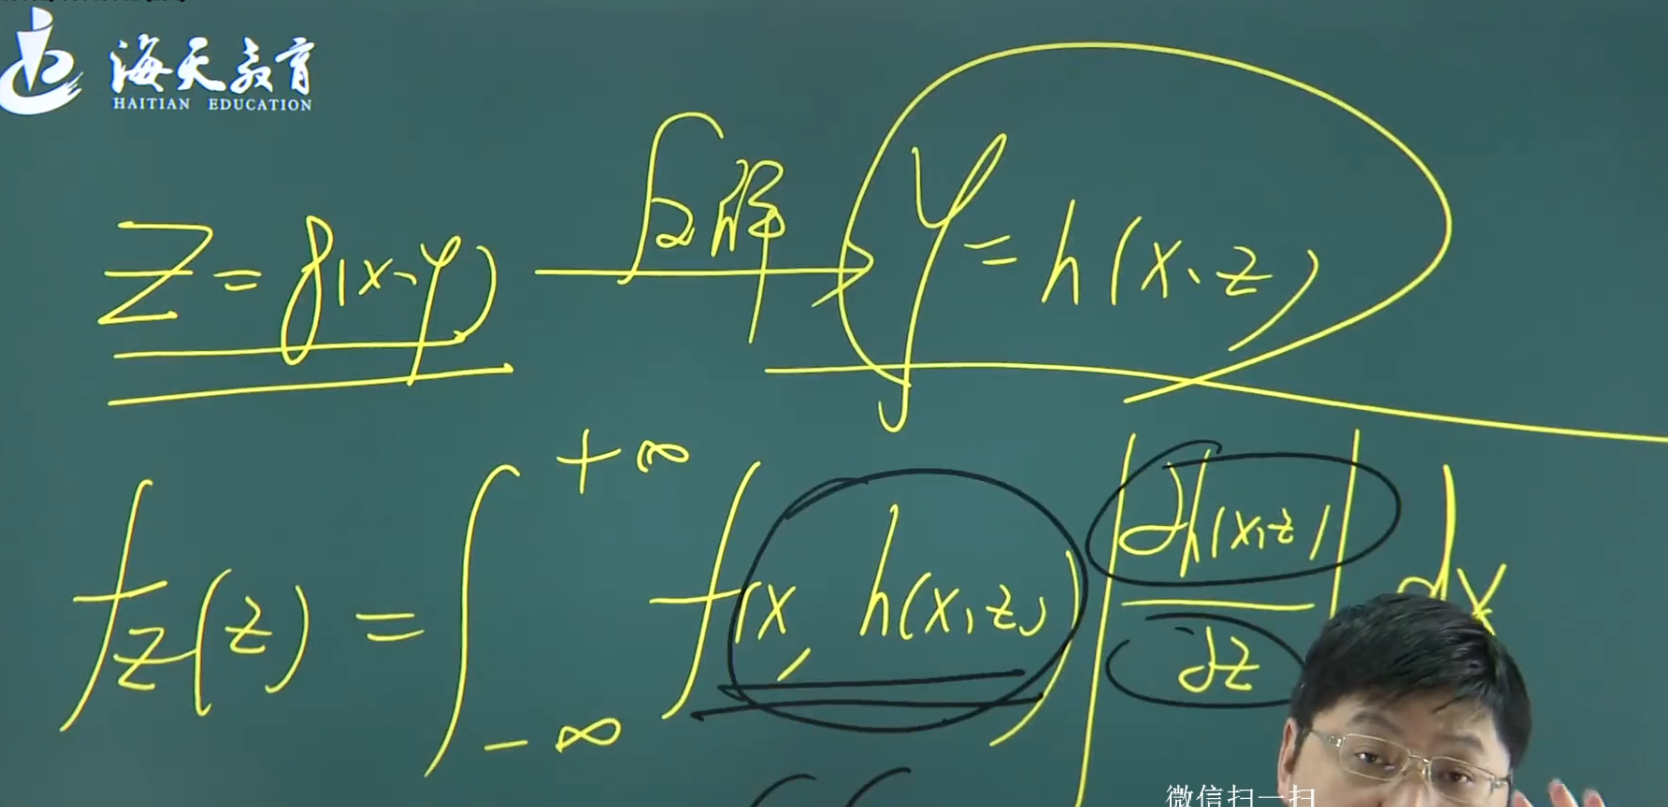 海天教育
HAITIAN EDUCATION
Z = g(x, y) 反解 y = h(x, z)
f_Z(z) = ∫_{-∞}^{+∞} f(x, h(x, z)) |∂h(x, z)/∂z| dx
微信扫一扫